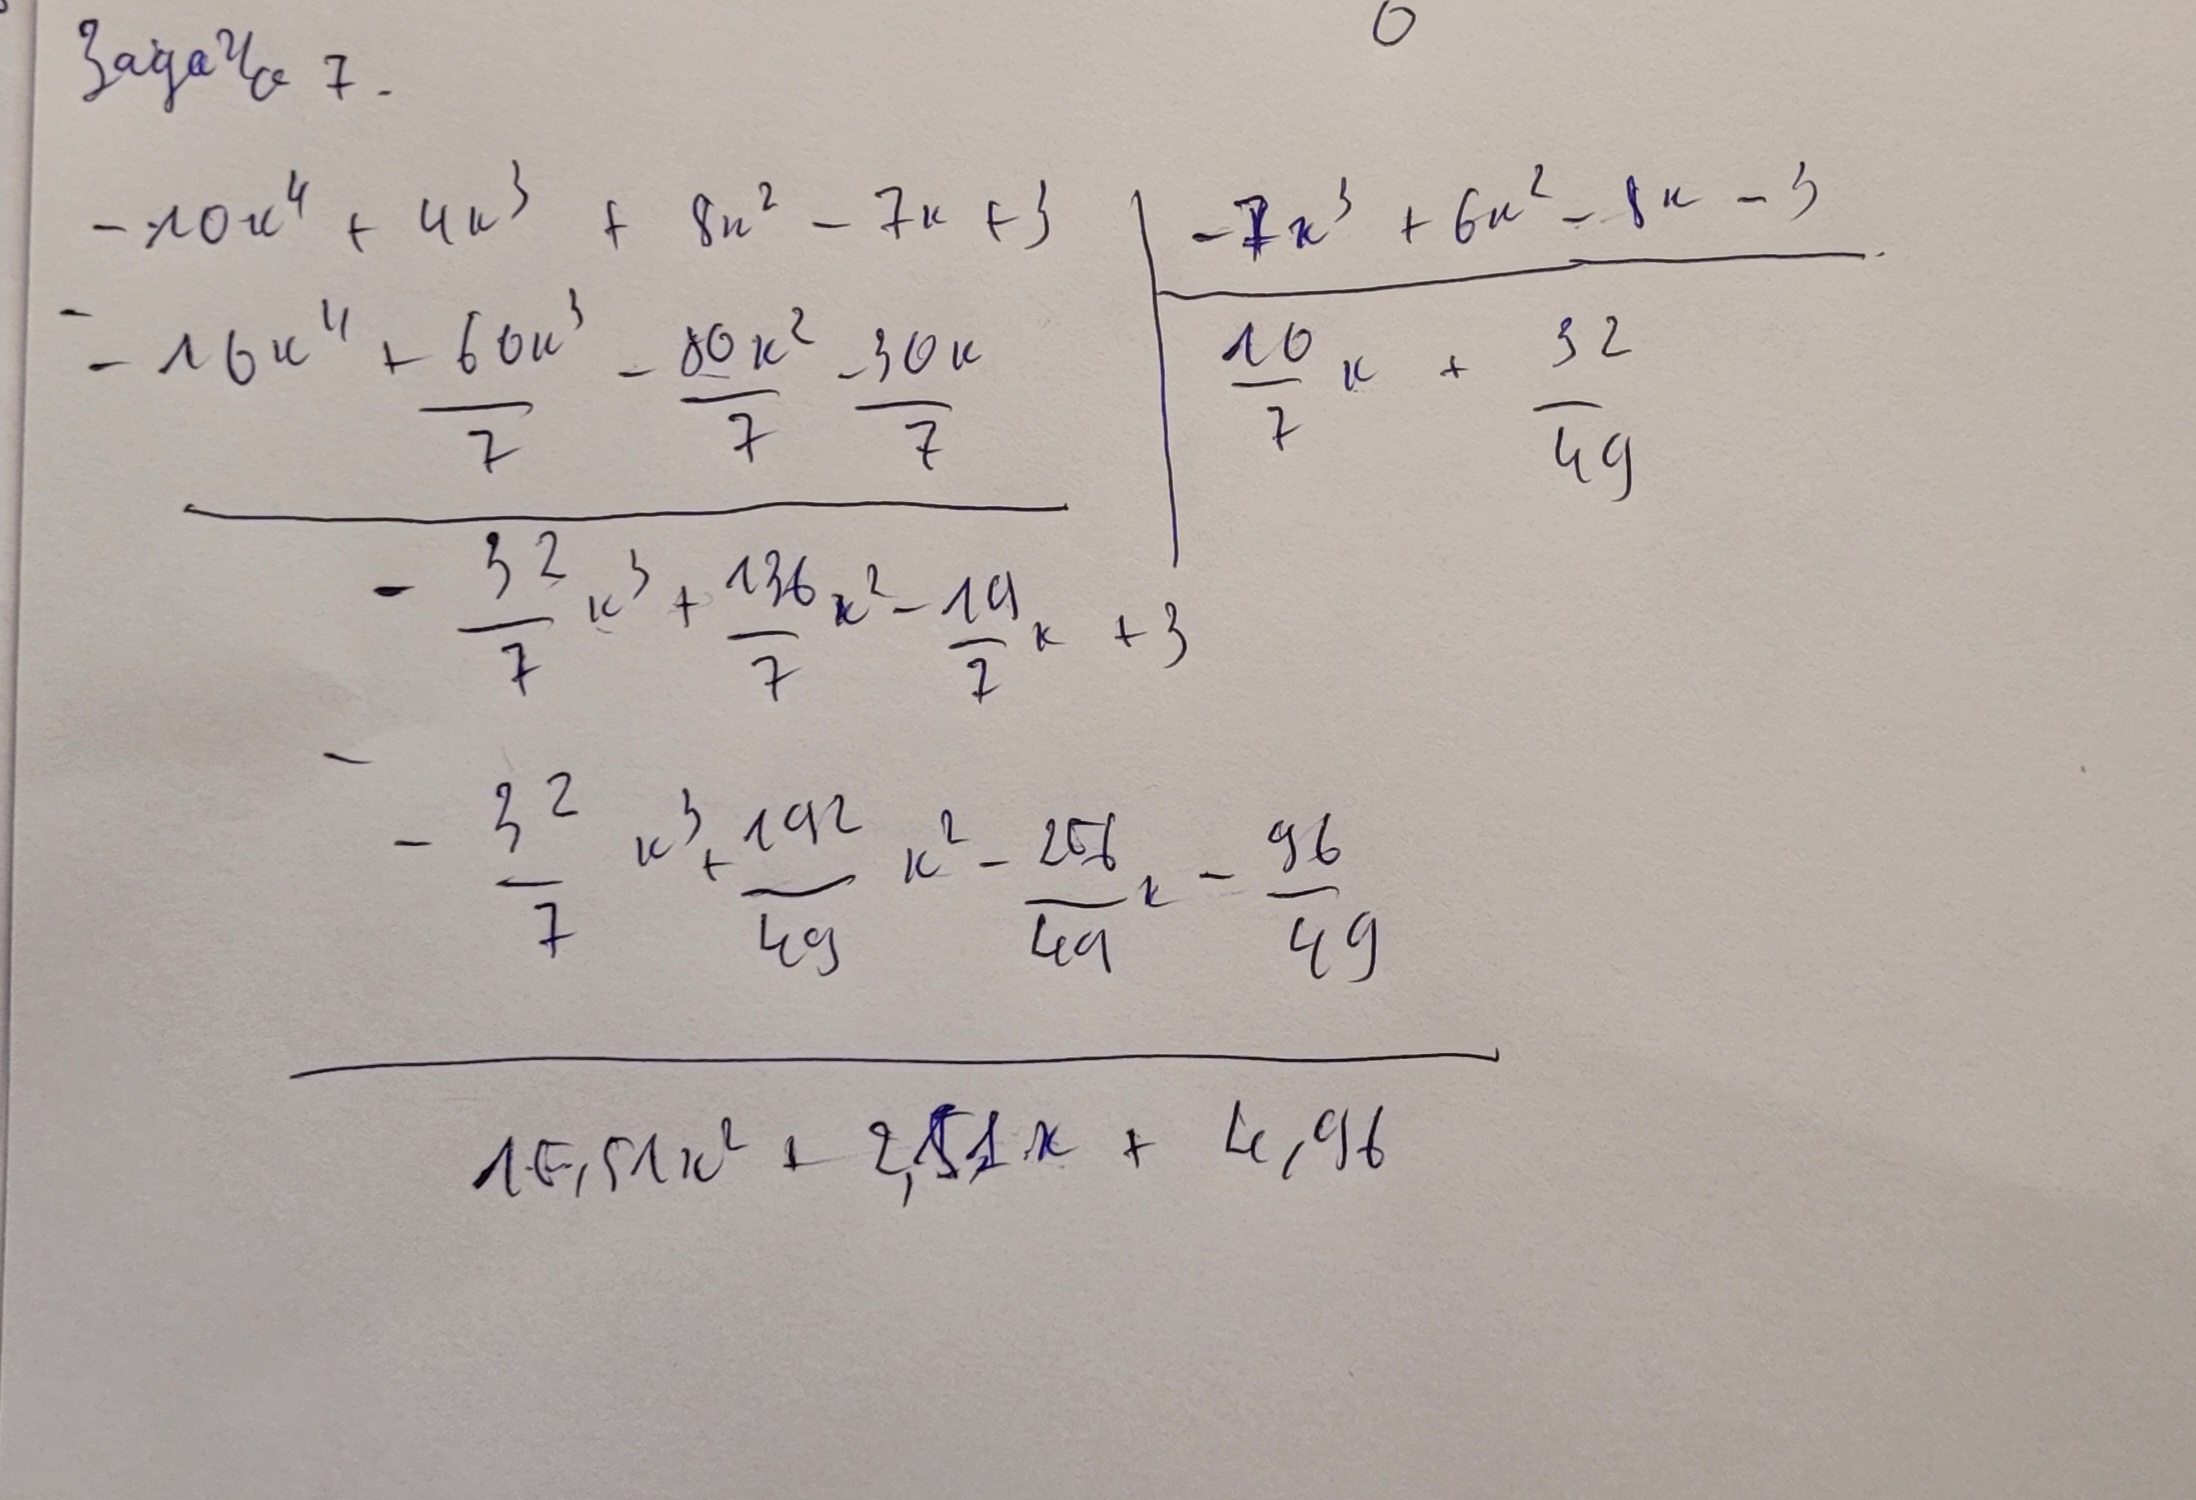 0
Задача 7.
-10x⁴ + 4x³ + 8x² - 7x + 3 | -7x³ + 6x² - 8x - 3
- -10x⁴ + 60x³/7 - 80x²/7 - 30x/7 | 10/7 x + 32/49
- 32/7 x³ + 136/7 x² - 19/7 x + 3
- - 32/7 x³ + 192/49 x² - 256/49 x - 96/49
15,51x² + 2,51x + 4,96